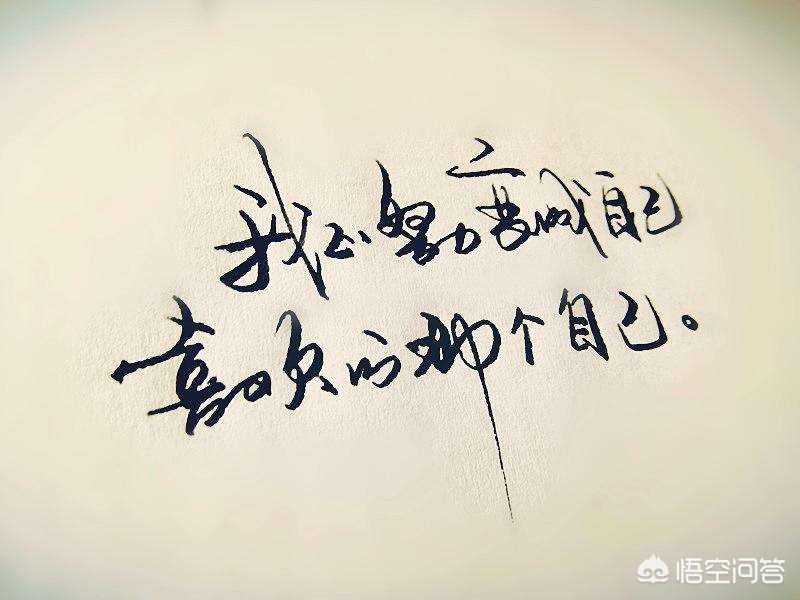 我正努力变成自己
喜欢的那个自己。
悟空问答